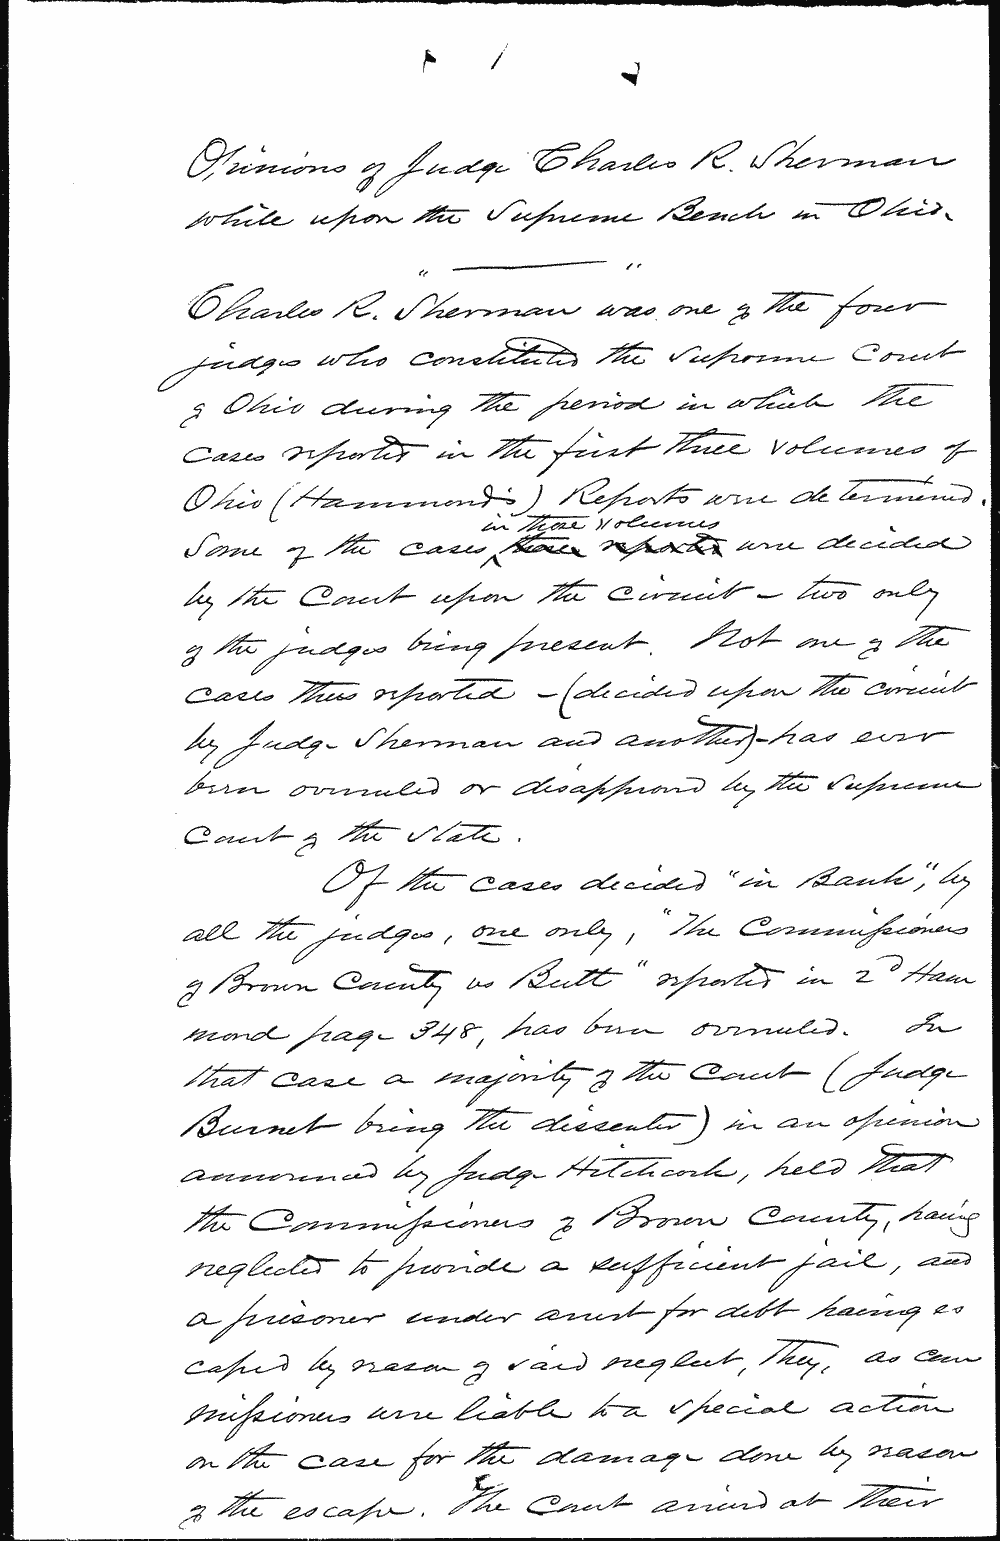 Opinions of Judge Charles R. Sherman
while upon the Supreme Bench in Ohio.
" ——— "
Charles R. Sherman was one of the four
judges who constituted the Supreme Court
of Ohio during the period in which the
cases reported in the first three volumes of
Ohio (Hammond's) Reports were determined.
in those volumes
Some of the cases these reports were decided
by the Court upon the circuit – two only
of the judges being present. Not one of the
cases thus reported – (decided upon the circuit
by Judge Sherman and another) – has ever
been overruled or disapproved by the Supreme
Court of the State.
Of the cases decided "in Bank", by
all the judges, one only, "The Commissioners
of Brown County vs Butt" reported in 2d Ham
mond page 348, has been overruled. In
that case a majority of the Court (Judge
Burnet being the dissenter) in an opinion
announced by Judge Hitchcock, held that
the Commissioners of Brown County, having
neglected to provide a sufficient jail, and
a prisoner under arrest for debt having es
caped by reason of said neglect, they, as com
missioners were liable to a special action
on the case for the damage done by reason
of the escape. The Court arrived at their